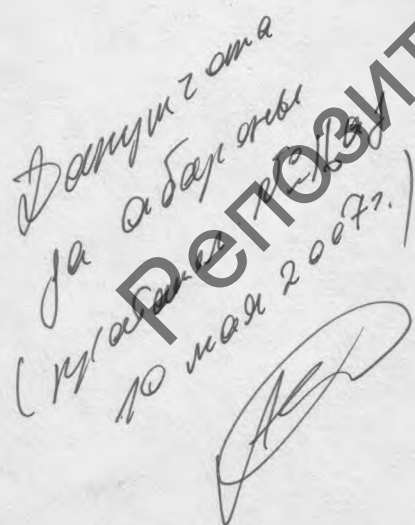 Дапушчана
да абароны
(пратакол
10 мая 2007г.)
Репозит